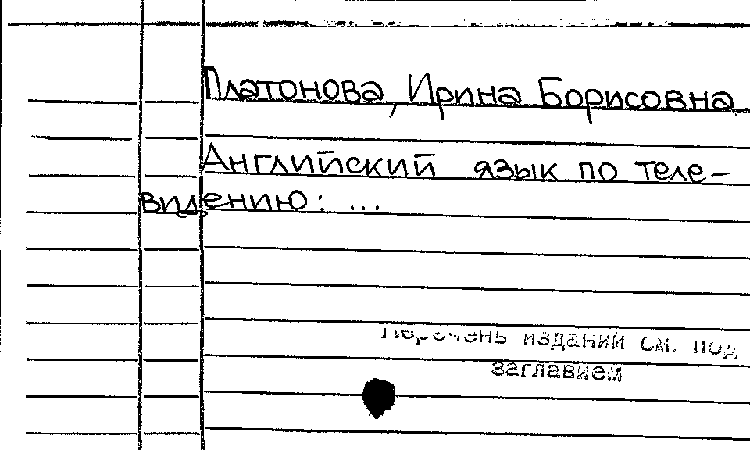 Платонова, Ирина Борисовна
Английский язык по теле-
видению: ...
Перечень изданий см. под
заглавием